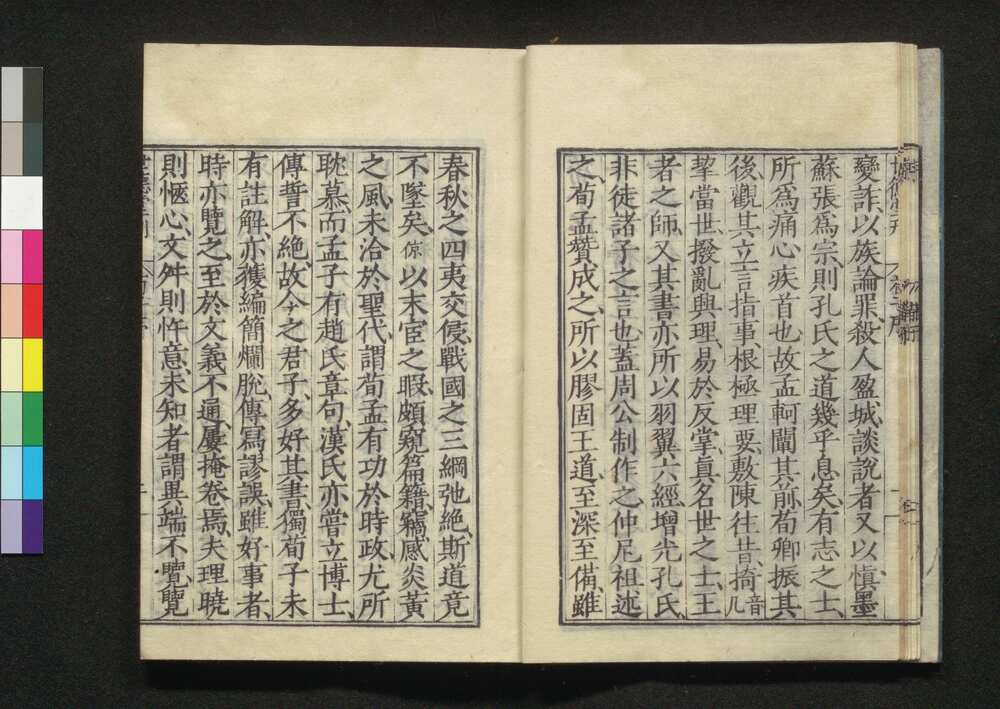 變詐以族論罪殺人盈城談說者又以愼墨
蘇張爲宗則孔氏之道幾乎息矣有志之士
所爲痛心疾首也故孟軻闡其前荀卿振其
後觀其立言指事根極理要敷陳往昔掎音几
挈當世撥亂興理易於反掌眞名世之士王
者之師又其書亦所以羽翼六經增光孔氏
非徒諸子之言也蓋周公制作之仲尼祖述
之荀孟贊成之所以膠固王道至深至備雖
春秋之四夷交侵戰國之三綱弛絶斯道竟
不墜矣倞以末宦之暇頗窺篇籍竊感炎黃
之風未洽於聖代謂荀孟有功於時政尤所
耽慕而孟子有趙氏章句漢氏亦嘗立博士
傳誓不絶故今之君子多好其書獨荀子未
有註解亦獲編簡爛脫傳寫謬誤雖好事者
時亦覽之至於文義不通屢掩卷焉夫理曉
則愜心文舛則忤意未知者謂異端不覽覽